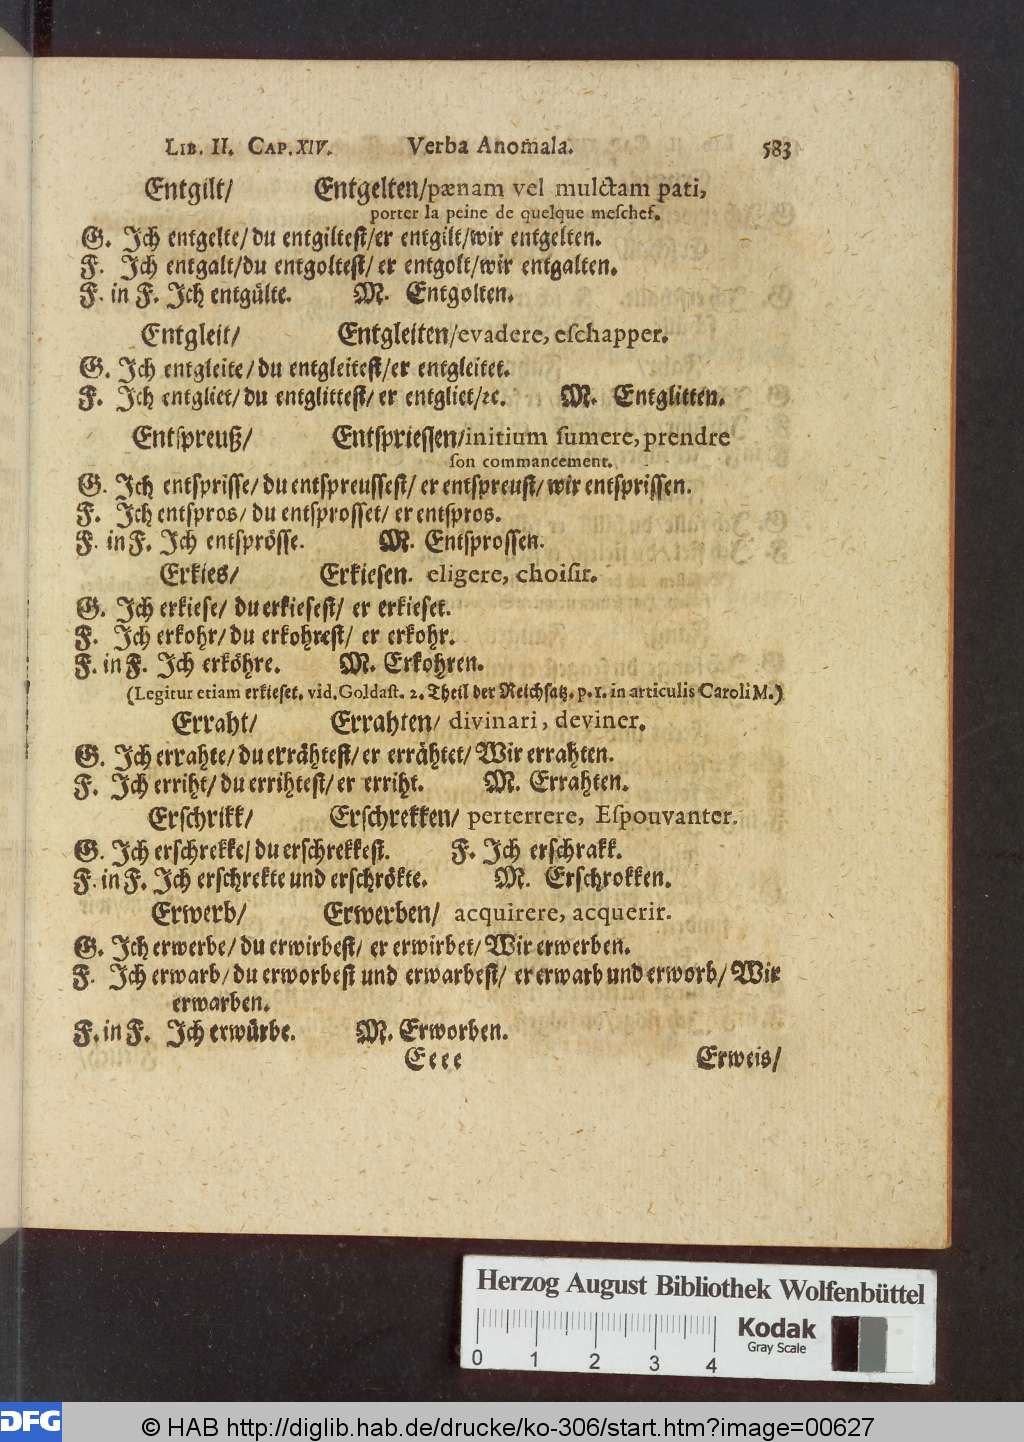 LIB. II. CAP. XIV. Verba Anom̄ala. 583
Entgilt/ Entgelten/pænam vel mulctam pati,
porter la peine de quelque meſchef.
G. Ich entgelte/ du entgilteſt/er entgilt/wir entgelten.
F. Ich entgalt/du entgolteſt/ er entgolt/wir entgalten.
F. in F. Ich entgülte. M. Entgolten.
Entgleit/ Entgleiten/evadere, eſchapper.
G. Ich entgleite/du entgleiteſt/er entgleitet.
F. Ich entgliet/du entglitteſt/ er entgliet/ꝛc. M. Entglitten.
Entſpreuß/ Entſprieſſen/initium ſumere, prendre
ſon commancement.
G. Ich entſpriſſe/du entſpreuſſeſt/ er entſpreuſt/ wir entſpriſſen.
F. Ich entſpros/ du entſproſſet/ er entſpros.
F. in F. Ich entſpröſſe. M. Entſproſſen.
Erkies/ Erkieſen. eligere, choiſir.
G. Ich erkieſe/ du erkieſeſt/ er erkieſet.
F. Ich erkohr/ du erkohreſt/ er erkohr.
F. in F. Ich erköhre. M. Erkohren.
(Legitur etiam erkieſet. vid. Goldaſt. 2. Theil der Reichſatz. p. 1. in articulis Caroli M.)
Erraht/ Errahten/ divinari, deviner.
G. Ich errahte/du errähteſt/er errähtet/ Wir errahten.
F. Ich erriht/du errihteſt/er erriht. M. Errahten.
Erſchrikk/ Erſchrekken/ perterrere, Eſpouvanter.
G. Ich erſchrekke/du erſchrekkeſt. F. Ich erſchrakk.
F. in F. Ich erſchrekte und erſchrökte. M. Erſchrokken.
Erwerb/ Erwerben/ acquirere, acquerir.
G. Ich erwerbe/ du erwirbeſt/ er erwirbet/ Wir erwerben.
F. Ich erwarb/du erworbeſt und erwarbeſt/ er erwarb und erworb/ Wir
erwarben.
F. in F. Ich erwürbe. M. Erworben.
Eeee Erweis/
Herzog August Bibliothek Wolfenbüttel
Kodak
Gray Scale
0 1 2 3 4
DFG © HAB http://diglib.hab.de/drucke/ko-306/start.htm?image=00627